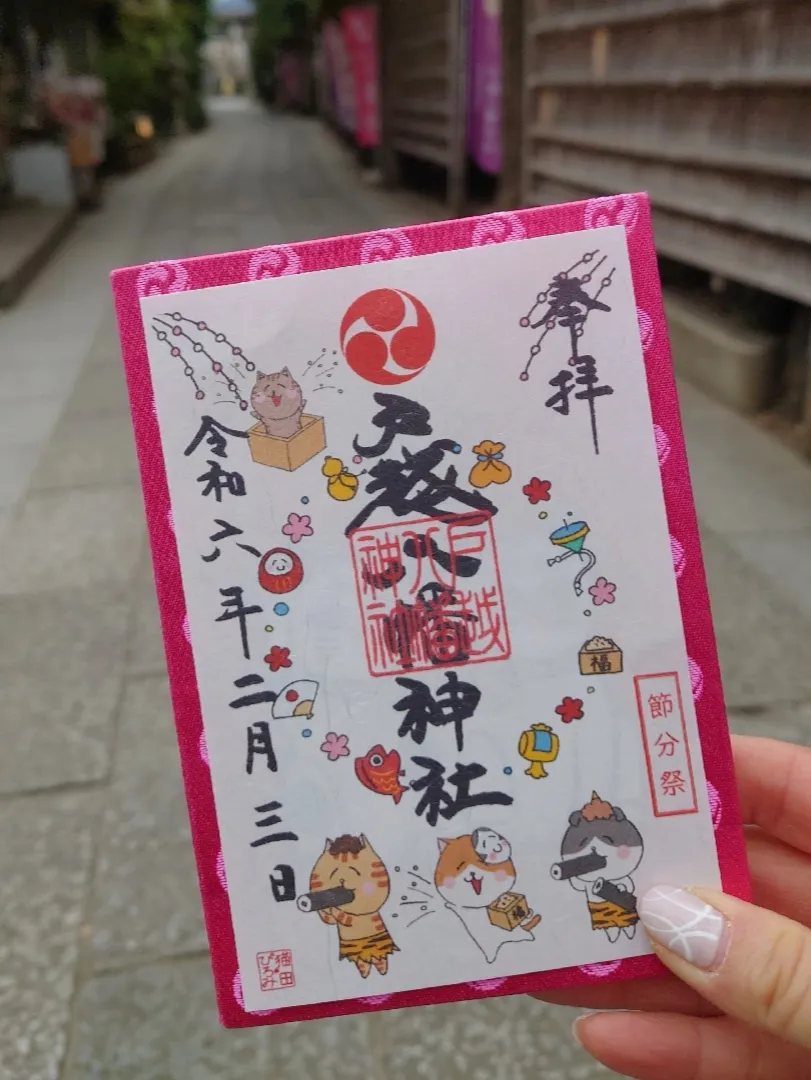 奉拝
戸越八幡神社
戸越八幡神社
令和六年二月三日
節分祭
福
福
猫田
ぴろみ